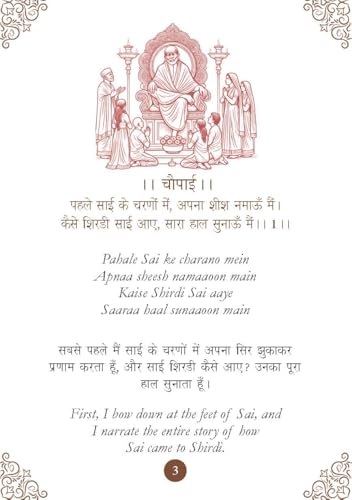 ।। चौपाई ।।
पहले साई के चरणों में, अपना शीश नमाऊँ मैं।
कैसे शिरडी साई आए, सारा हाल सुनाऊँ मैं।। 1।।
Pahale Sai ke charano mein
Apnaa sheesh namaaoon main
Kaise Shirdi Sai aaye
Saaraa haal sunaaoon main
सबसे पहले मैं साई के चरणों में अपना सिर झुकाकर
प्रणाम करता हूँ, और साई शिरडी कैसे आए? उनका पूरा
हाल सुनाता हूँ।
First, I bow down at the feet of Sai, and
I narrate the entire story of how
Sai came to Shirdi.
3